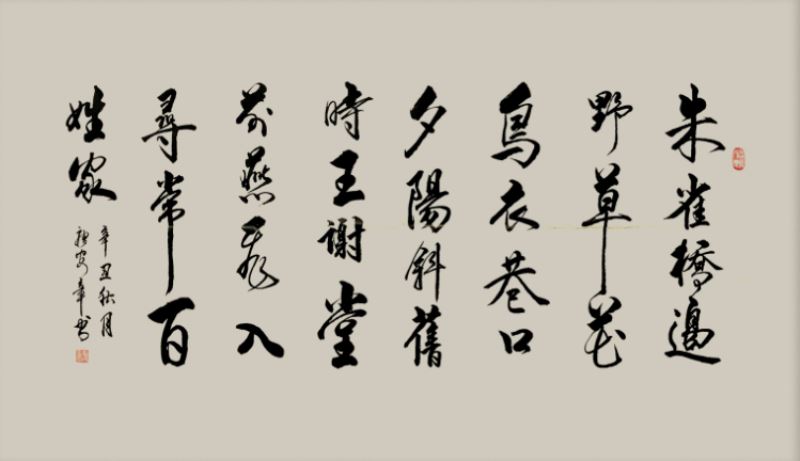 朱雀橋邊
野草花
烏衣巷口
夕陽斜舊
時王謝堂
前燕飛入
尋常百
姓家
辛丑秋月